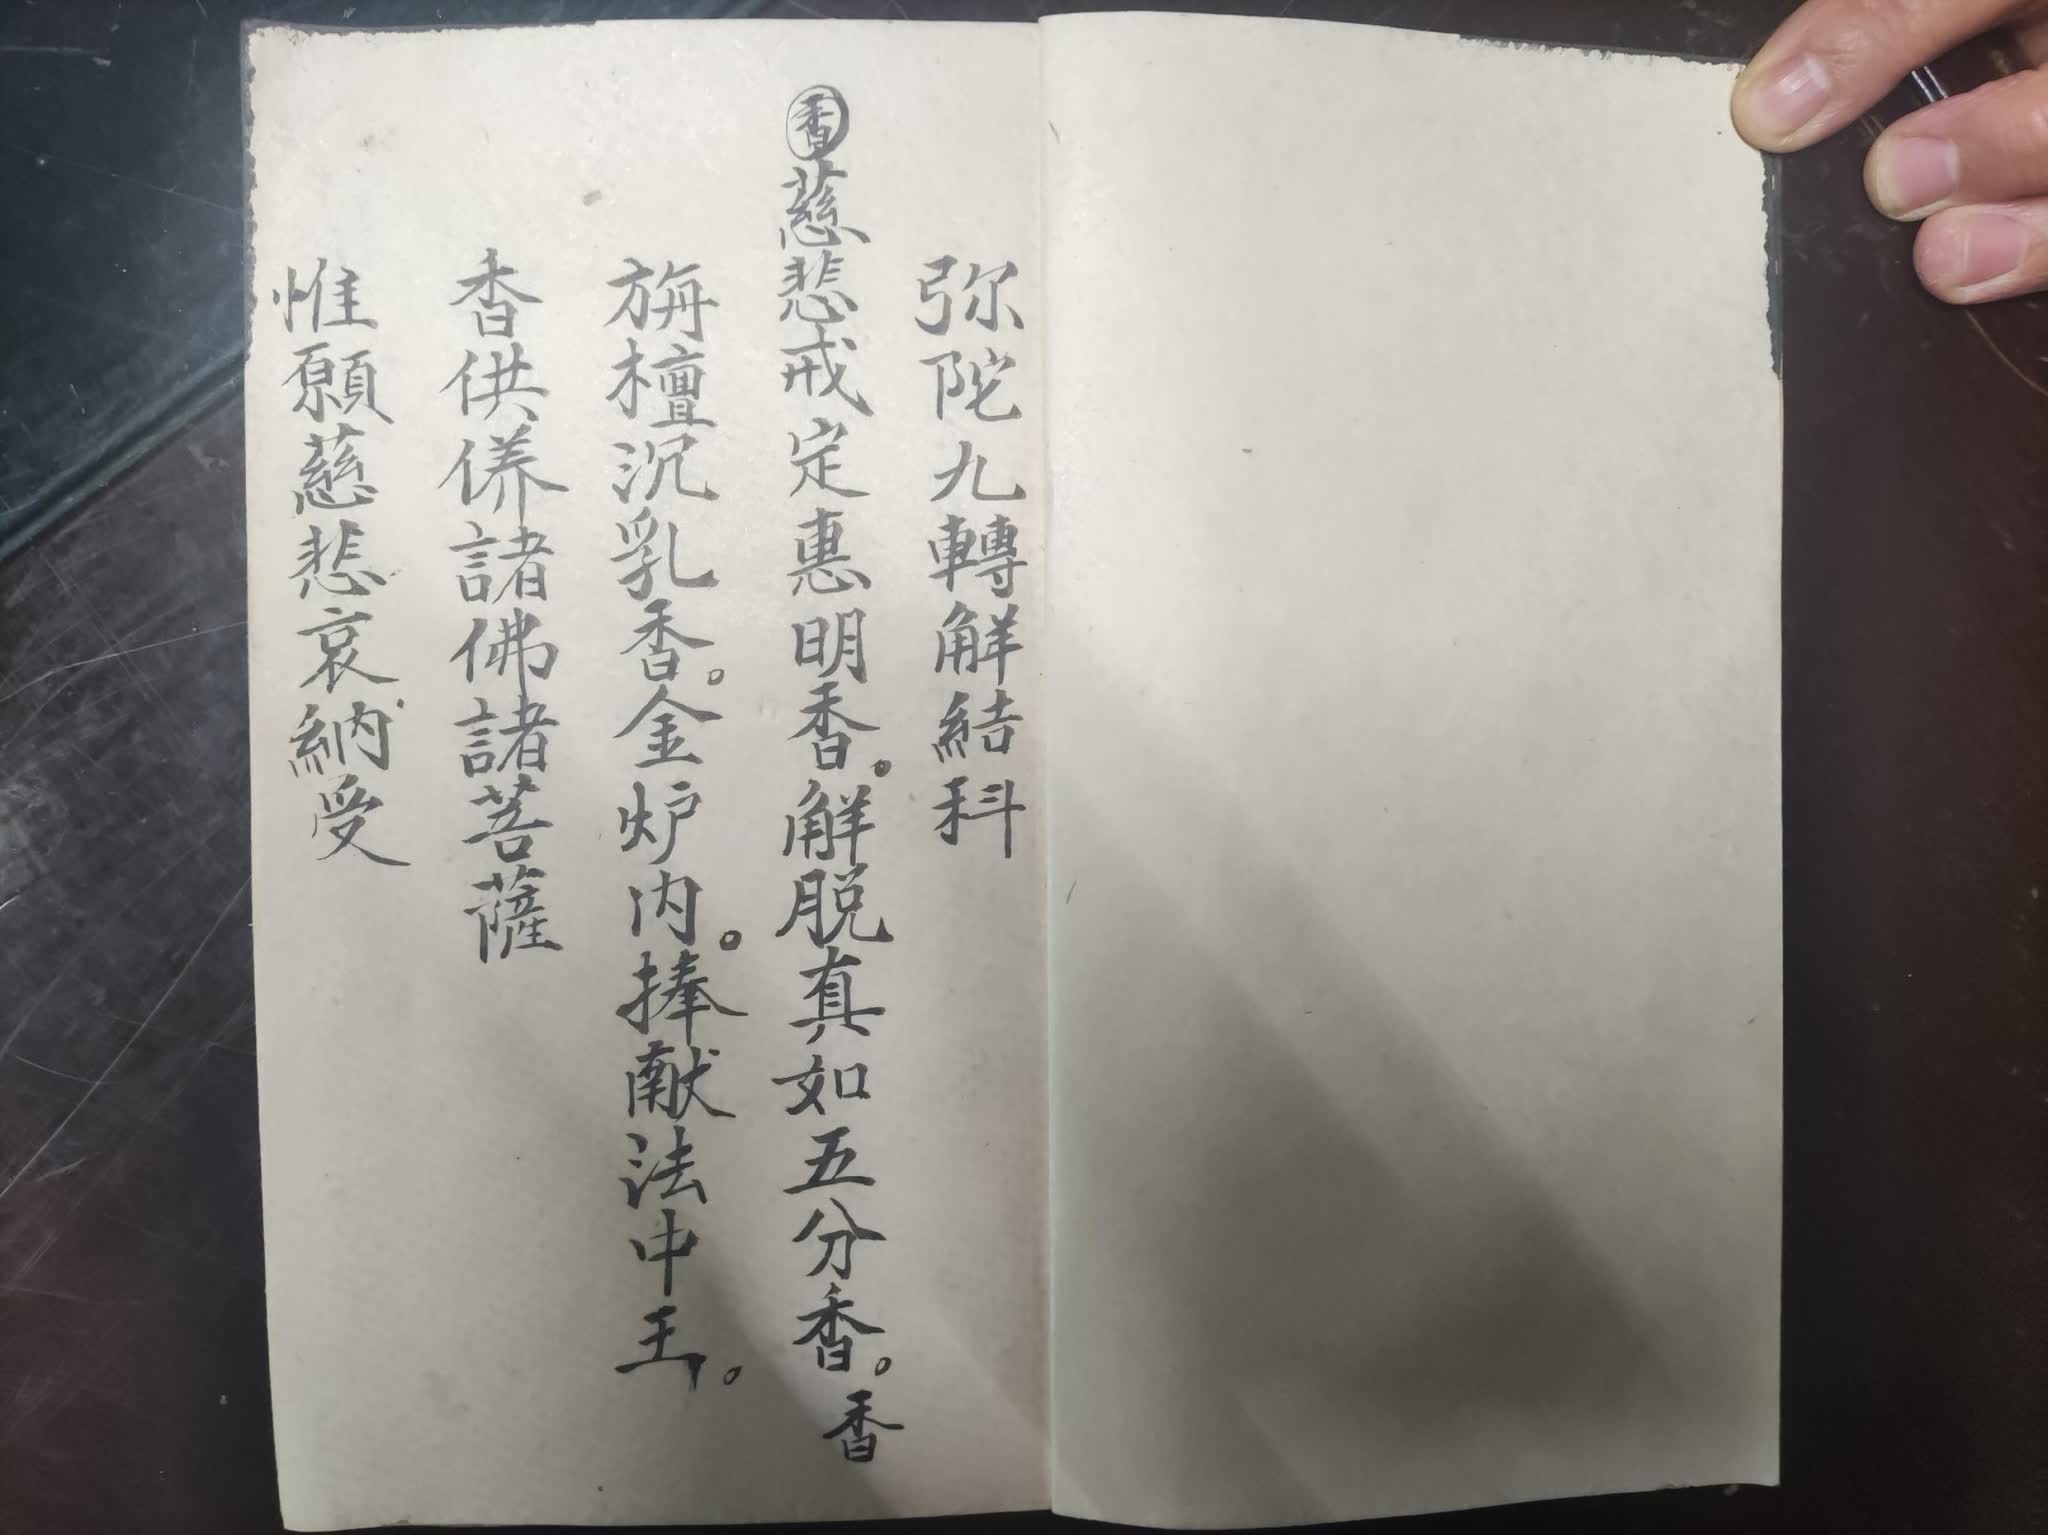 弥陀九轉解結科
香慈悲戒定惠明香。解脱真如五分香。香
旃檀沉乳香。金炉内。捧献法中王。
香供侍諸佛諸菩薩
惟願慈悲哀納受